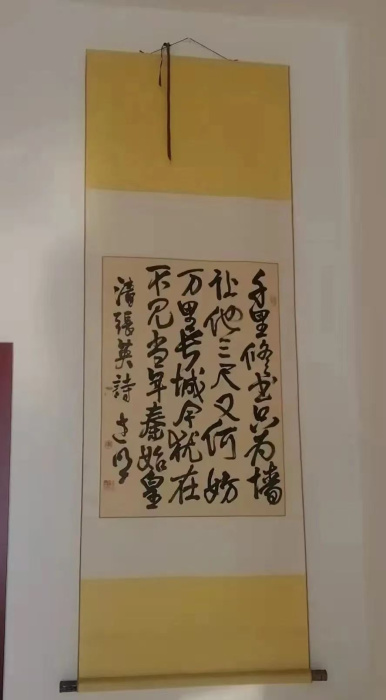 千里修书只为墙
让他三尺又何妨
万里长城今犹在
不见当年秦始皇
清張英詩